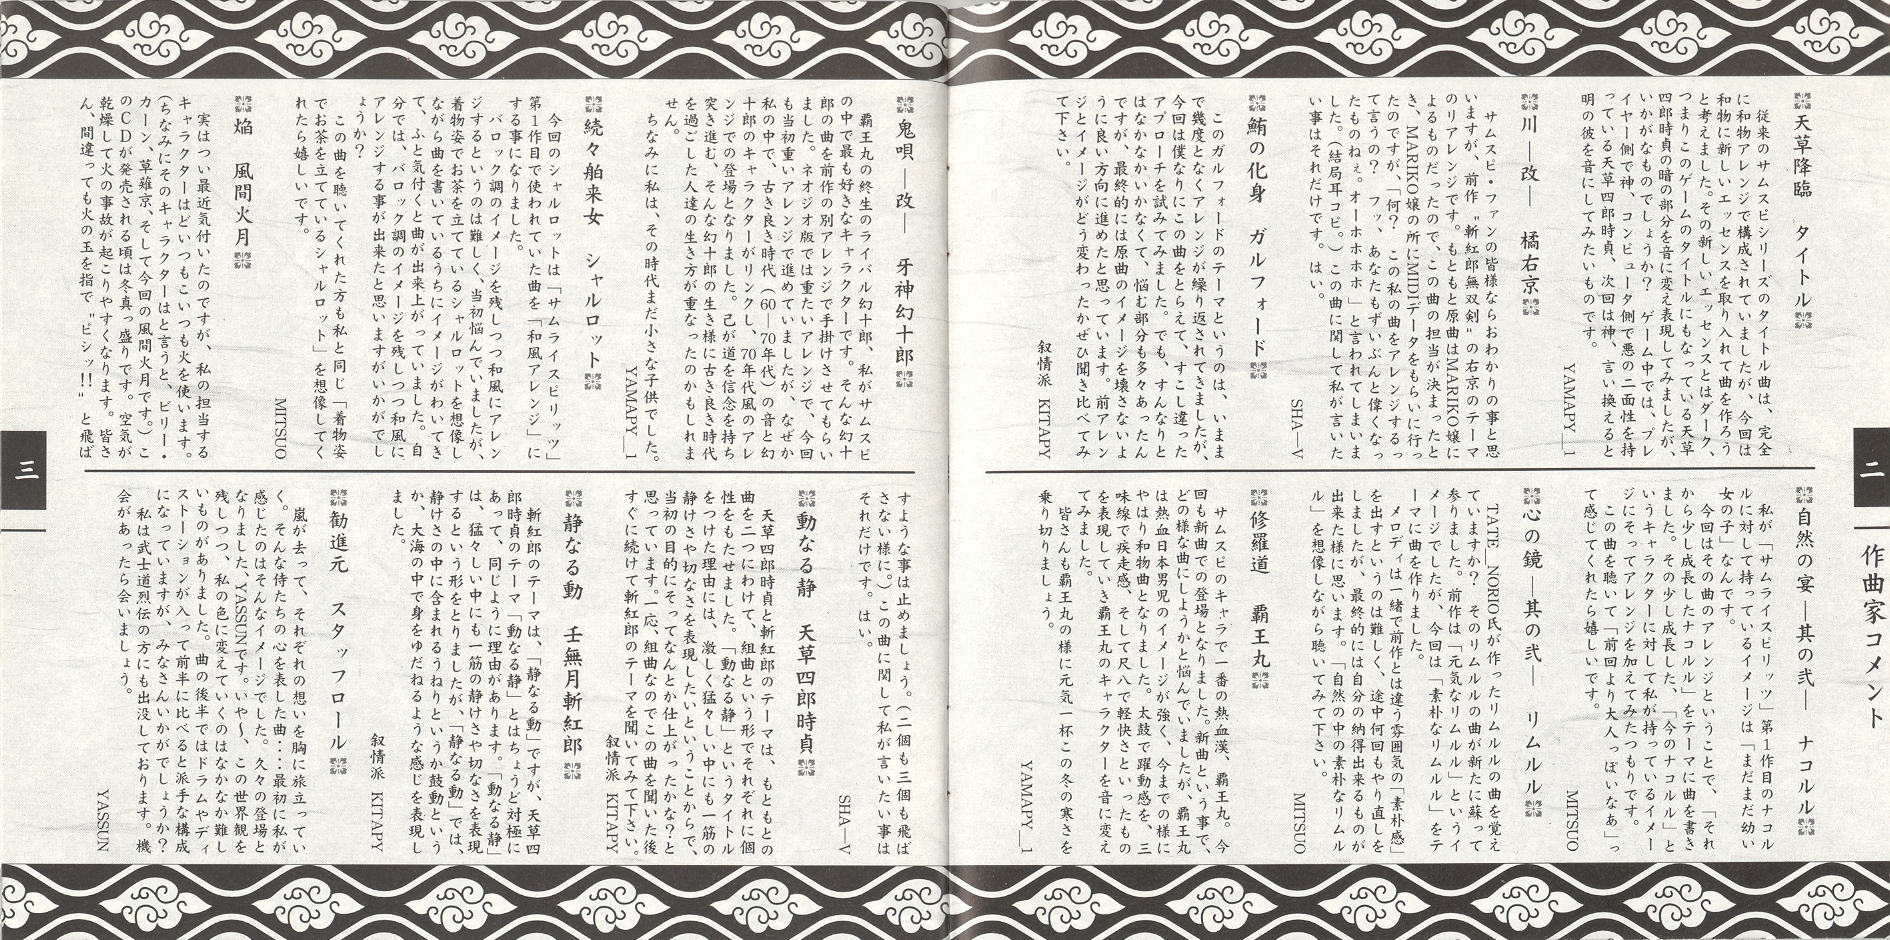 二
作曲家コメント
天草降臨　タイトル
従来のサムスピシリーズのタイトル曲は、完全
に和物アレンジで構成されていましたが、今回は
和物に新しいエッセンスを取り入れて曲を作ろう
と考えました。その新しいエッセンスとはダーク、
つまりこのゲームのタイトルにもなっている天草
四郎時貞の暗の部分を音に変え表現してみましたが、
いかがなものでしょうか？　ゲーム中では、プレ
イヤー側で神、コンピュータ側で悪の二面性を持
っている天草四郎時貞、次回は神、言い換えると
明の彼を音にしてみたいものです。
YAMAPY_1
川―改―　橘右京
サムスピ・ファンの皆様ならおわかりの事と思
いますが、前作〝斬紅郎無双剣〟の右京のテーマ
のリアレンジです。もともと原曲はMARIKO嬢に
よるものだったので、この曲の担当が決まったと
き、MARIKO嬢の所にMIDIデータをもらいに行っ
たのですが、「何？　この私の曲をアレンジするっ
て言うの？　フッ、あなたもずいぶんと偉くなっ
たものねぇ。オーホホホホ」と言われてしまいま
した。（結局耳コピ。）この曲に関して私が言いた
い事はそれだけです。はい。
SHA―V
鮪の化身　ガルフォード
このガルフォードのテーマというのは、いまま
で幾度となくアレンジが繰り返されてきましたが、
今回は僕なりにこの曲をとらえて、すこし違った
アプローチを試みてみました。でも、すんなりと
はなかなかいかなくて、悩む部分も多々あったん
ですが、最終的には原曲のイメージを壊さないよ
うに良い方向に進めたと思っています。前アレン
ジとイメージがどう変わったかぜひ聞き比べてみ
て下さい。
叙情派　KITAPY
自然の宴―其の弐―　ナコルル
私が「サムライスピリッツ」第1作目のナコル
ルに対して持っているイメージは「まだまだ幼い
女の子」なんです。
今回はその曲のアレンジということで、「それ
から少し成長したナコルル」をテーマに曲を書き
ました。その少し成長した、「今のナコルル」と
いうキャラクターに対して私が持っているイメー
ジにそってアレンジを加えてみたつもりです。
この曲を聴いて「前回より大人っぽいなあ」っ
て感じてくれたら嬉しいです。
MITSUO
心の鏡―其の弐―　リムルル
TATE_NORIO氏が作ったリムルルの曲を覚え
ていますか？　そのリムルルの曲が新たに蘇って
参りました。前作は「元気なリムルル」というイ
メージでしたが、今回は「素朴なリムルル」をテ
ーマに曲を作りました。
メロディは一緒で前作とは違う雰囲気の「素朴感」
を出すというのは難しく、途中何回もやり直しを
しましたが、最終的には自分の納得出来るものが
出来た様に思います。「自然の中の素朴なリムル
ル」を想像しながら聴いてみて下さい。
MITSUO
修羅道　覇王丸
サムスピのキャラで一番の熱血漢、覇王丸。今
回も新曲での登場となりました。新曲という事で、
どの様な曲にしようかと悩んでいましたが、覇王丸
は熱血日本男児のイメージが強く、今までの様に
やはり和物曲となりました。太鼓で躍動感を、三
味線で疾走感、そして尺八で軽快さといったもの
を表現していき覇王丸のキャラクターを音に変え
てみました。
皆さんも覇王丸の様に元気一杯この冬の寒さを
乗り切りましょう。
YAMAPY_1
鬼唄―改―　牙神幻十郎
覇王丸の終生のライバル幻十郎、私がサムスピ
の中で最も好きなキャラクターです。そんな幻十
郎の曲を前作の別アレンジで手掛けさせてもらい
ました。ネオジオ版では重たいアレンジで、今回
も当初重いアレンジで進めていましたが、なぜか
私の中で、古き良き時代（60―70年代）の音と幻
十郎のキャラクターがリンクし、70年代風のアレ
ンジでの登場となりました。己が道を信念を持ち
突き進む、そんな幻十郎の生き様に古き良き時代
を過ごした人達の生き方が重なったのかもしれま
せん。
ちなみに私は、その時代まだ小さな子供でした。
YAMAPY_1
続々舶来女　シャルロット
今回のシャルロットは「サムライスピリッツ」
第1作目で使われていた曲を「和風アレンジ」に
する事になりました。
バロック調のイメージを残しつつ和風にアレン
ジするというのは難しく、当初悩んでいましたが、
着物姿でお茶を立てているシャルロットを想像し
ながら曲を書いているうちにイメージがわいてき
て、ふと気付くと曲が出来上がっていました。自
分では、バロック調のイメージを残しつつ和風に
アレンジする事が出来たと思いますがいかがでし
ょうか？
この曲を聴いてくれた方も私と同じ「着物姿
でお茶を立てているシャルロット」を想像してく
れたら嬉しいです。
MITSUO
焔　風間火月
実はつい最近気付いたのですが、私の担当する
キャラクターはどいつもこいつも火を使います。
（ちなみにそのキャラクターはと言うと、ビリー・
カーン、草薙京、そして今回の風間火月です。）こ
のCDが発売される頃は冬真っ盛りです。空気が
乾燥して火の事故が起こりやすくなります。皆さ
ん、間違っても火の玉を指で〝ビシッ!!〟と飛ば
すような事は止めましょう。（二個も三個も飛ば
さない様に。）この曲に関して私が言いたい事は
それだけです。はい。
SHA―V
動なる静　天草四郎時貞
天草四郎時貞と斬紅郎のテーマは、もともとの
曲を二つにわけて、組曲という形でそれぞれに個
性をもたせました。「動なる静」というタイトル
をつけた理由には、激しく猛々しい中にも一筋の
静けさや切なさを表現したいということからで、
当初の目的にそってなんとか仕上がったかな？と
思っています。一応、組曲なのでこの曲を聞いた後
すぐに続けて斬紅郎のテーマを聞いてみて下さい。
叙情派　KITAPY
静なる動　壬無月斬紅郎
斬紅郎のテーマは、「静なる動」ですが、天草四
郎時貞のテーマ「動なる静」とはちょうど対極に
あって、同じように理由があります。「動なる静」
は、猛々しい中にも一筋の静けさや切なさを表現
するという形をとりましたが、「静なる動」では、
静けさの中に含まれるうねりというか鼓動という
か、大海の中で身をゆだねるような感じを表現し
ました。
叙情派　KITAPY
勧進元　スタッフロール
嵐が去って、それぞれの想いを胸に旅立ってい
く。そんな侍たちの心を表した曲・・・最初に私が
感じたのはそんなイメージでした。久々の登場と
なりました、YASSUNです。いや～、この世界観を
残しつつ、私の色に変えていくのはなかなか難し
いものがありました。曲の後半ではドラムやディ
ストーションが入って前半に比べると派手な構成
になっていますが、みなさんいかがでしょうか？
私は武士道烈伝の方にも出没しております。機
会があったら会いましょう。
YASSUN
三